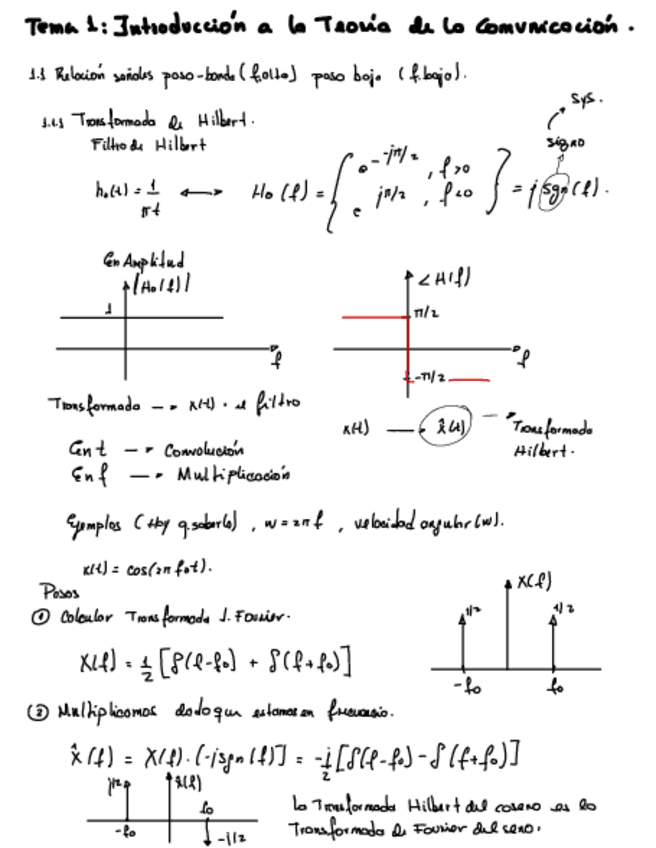 Tema 1: Introducción a la Teoría de la Comunicación.
1.1 Relación señales paso-banda (f.alta) paso bajo (f.bajo).
1.1.1 Transformada de Hilbert.
Sys.
Filtro de Hilbert
signo
h₀(t) = 1/πt ⟷ H₀(f) = { e^-jπ/2 , f>0
e^jπ/2 , f<0 } = j sgn(f).
En Amplitud
|H₀(f)|
∠H(f)
1
π/2
f
f
-π/2
Transformada → x(t) · el filtro
x(t) → x̂(t) → Transformada
Hilbert.
En t → Convolución
En f → Multiplicación
Ejemplos (Hay q. saberlo), w = 2πf, velocidad angular (w).
x(t) = cos(2πf₀t).
Pasos
X(f)
① Calcular Transformada d. Fourier.
1/2
1/2
X(f) = 1/2 [δ(f-f₀) + δ(f+f₀)]
-f₀
f₀
② Multiplicamos dado que estamos en frecuencia.
x̂(f) = X(f)·(-jsgn(f)] = -j/2 [δ(f-f₀) - δ(f+f₀)]
j/2
x̂(f)
f₀
-f₀
-j/2
La Transformada Hilbert del coseno es la
Transformada de Fourier del seno.